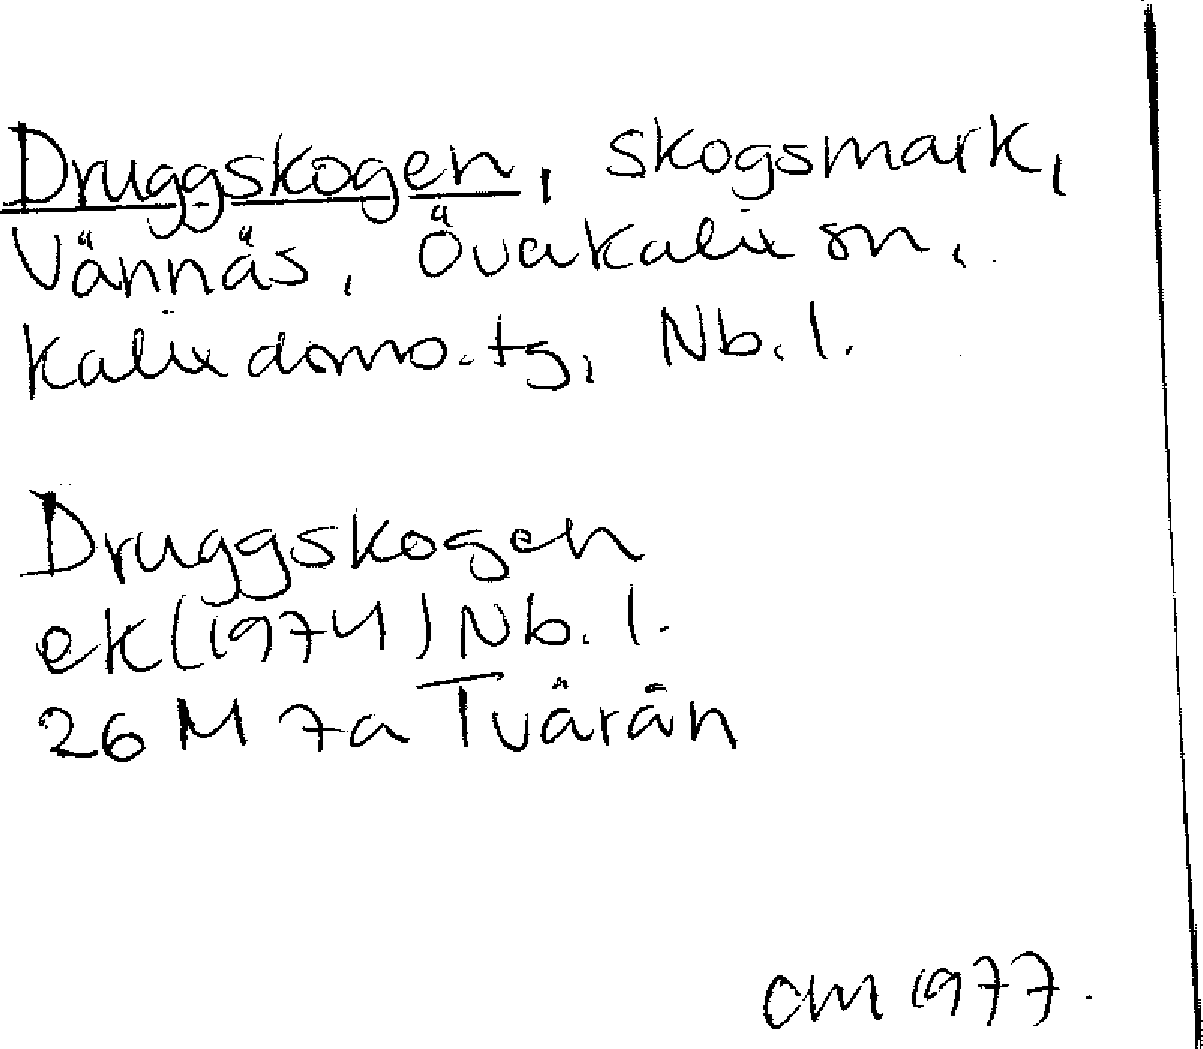 Druggskogen, skogsmark,
Vännäs, Överkalix sn,
Kalix doms.tg, Nb.l.
Druggskogen
ek (1974) Nb.l.
26 M 7a Tvärån
am 1977.